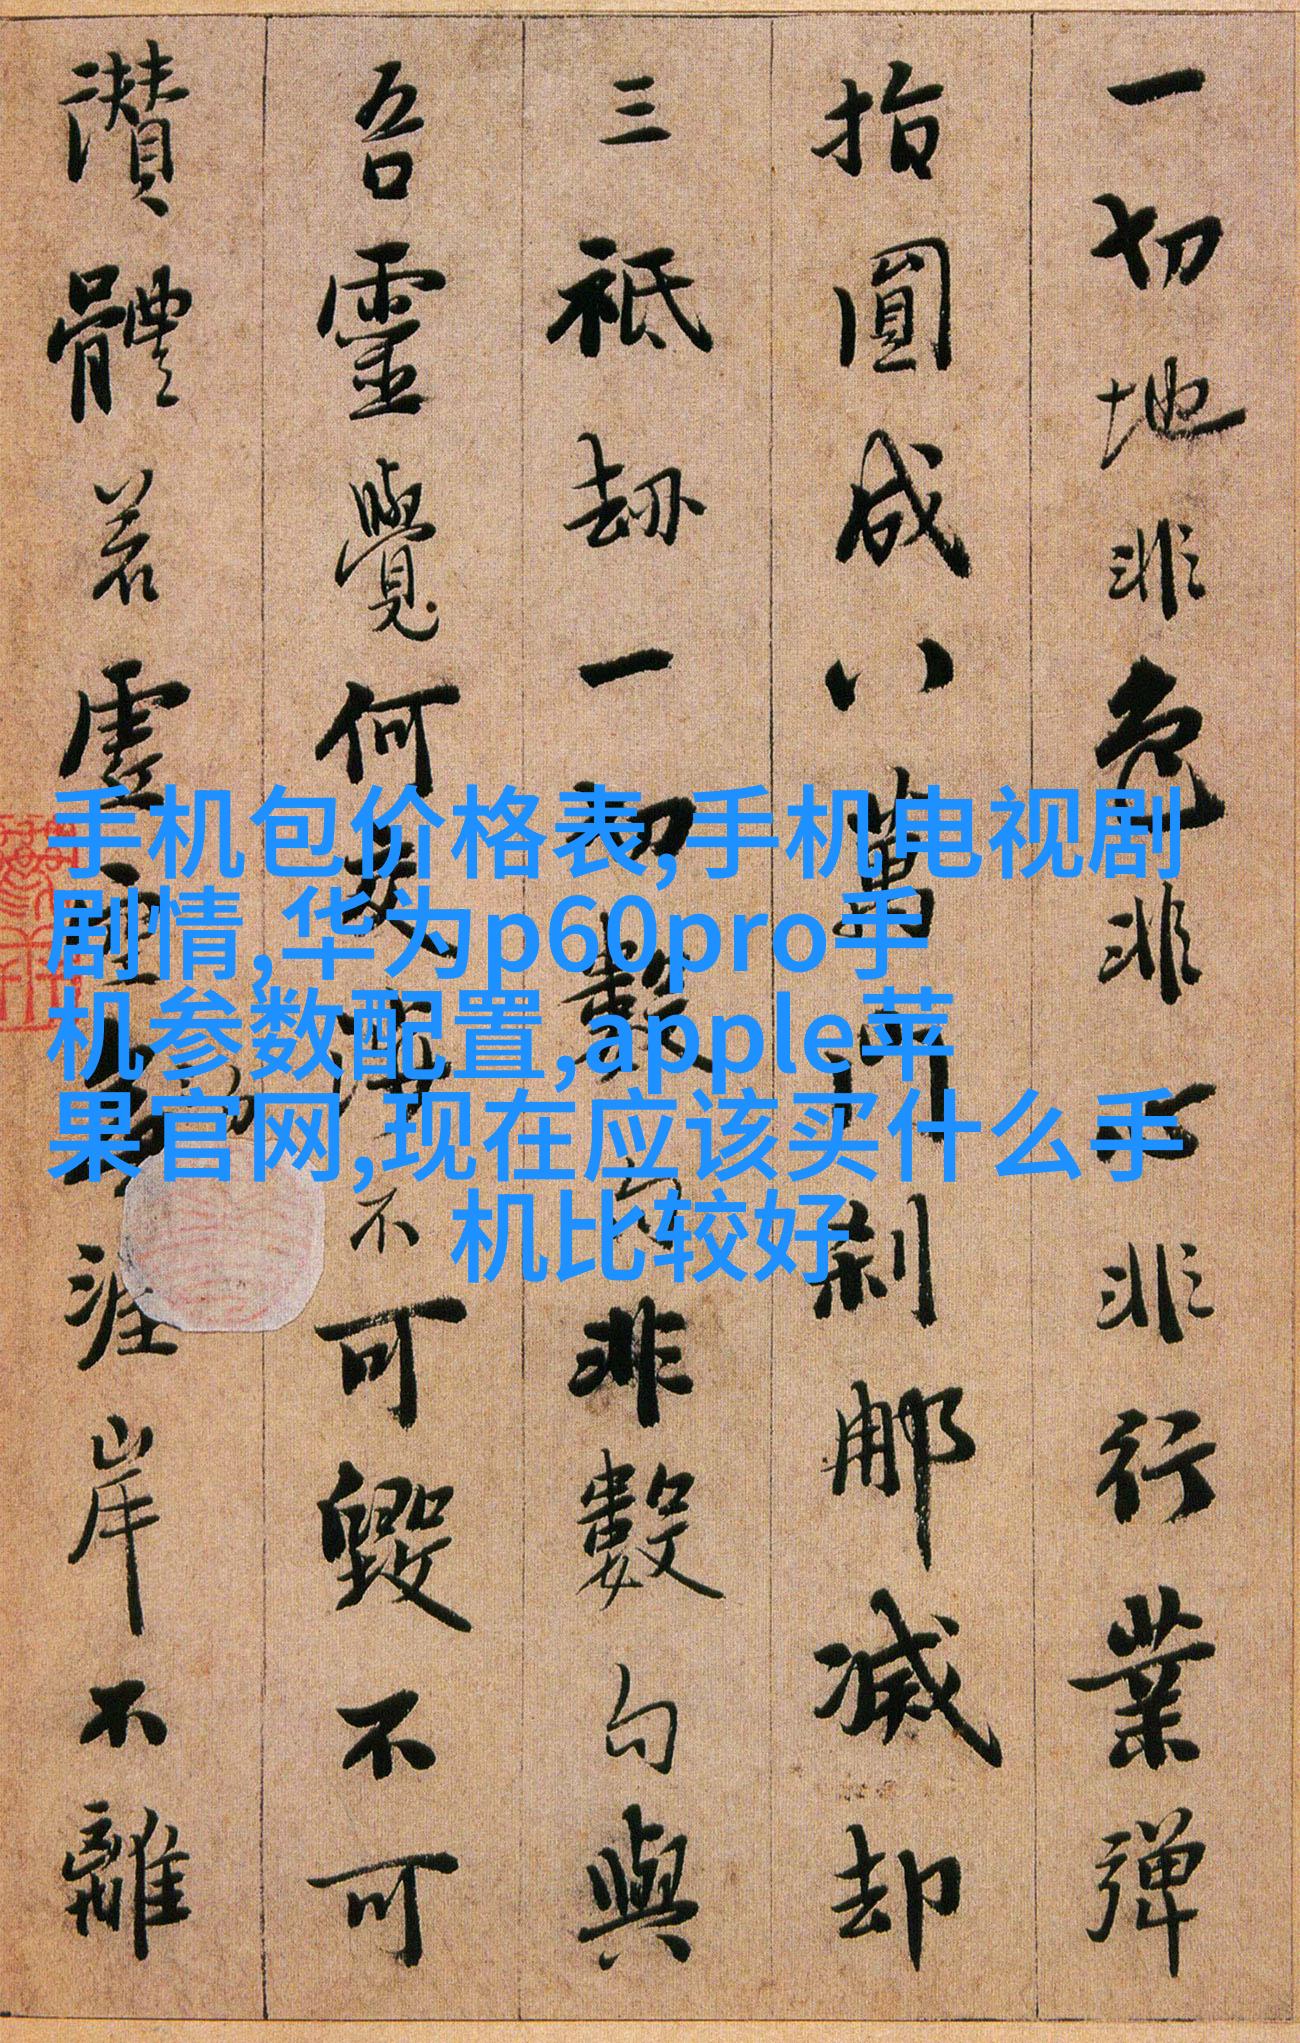 一切地非色非心非行業彈
指圓成八萬門刹那滅却
三祇劫一切數句非數句與
吾靈覺何交涉不可毀不可
讚體若虛空勿涯岸不離
手机包价格表,手机电视剧
剧情,华为p60pro手
机参数配置,apple苹
果官网,现在应该买什么手
机比较好